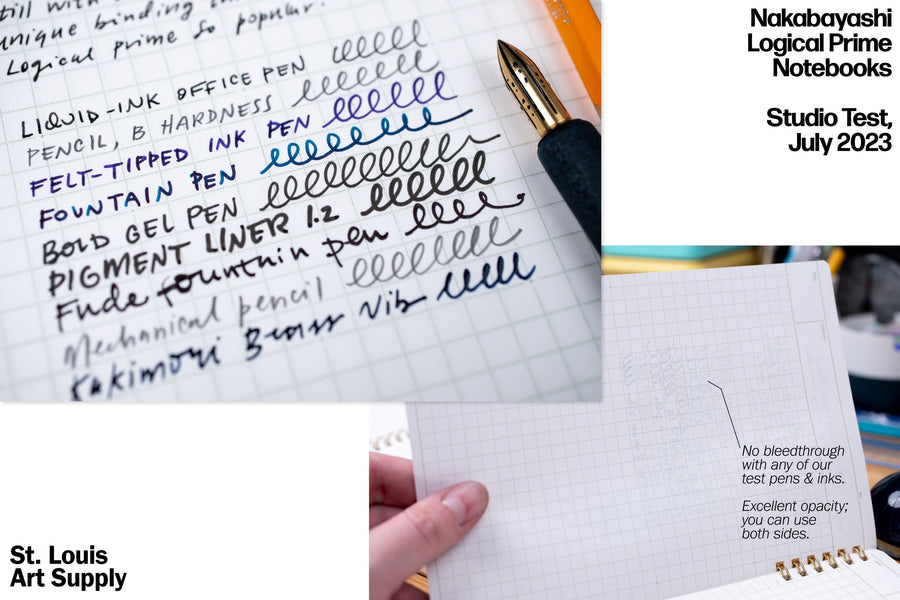 till with
unique binding
Logical prime so popular.
LIQUID-INK OFFICE PEN
PENCIL, B HARDNESS
FELT-TIPPED INK PEN
FOUNTAIN PEN
BOLD GEL PEN
PIGMENT LINER 1.2
Fude fountain pen
Mechanical pencil
Kakimori Brass Nib
Nakabayashi
Logical Prime
Notebooks
Studio Test,
July 2023
No bleedthrough
with any of our
test pens & inks.
Excellent opacity;
you can use
both sides.
St. Louis
Art Supply